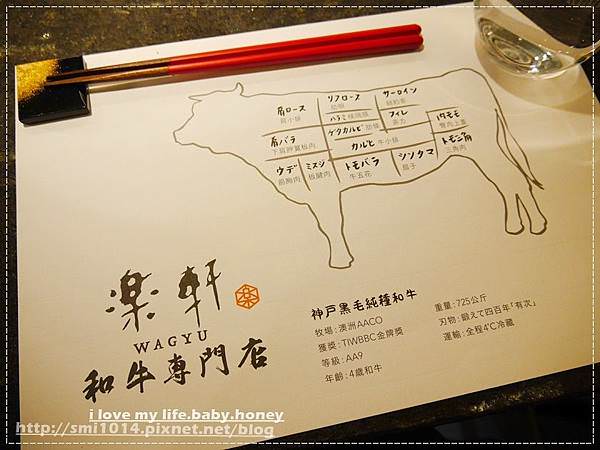 肩ロース
肩小排
リブロース
肋眼
サーロイン
紐約客
ハラミ 橫隔膜
フィレ
菲力
内モモ
臀肉上蓋
肩バラ
下肩胛翼板肉
ゲタカルビ 肋條
カルビ 牛小排
トモ三角
三角肉
ウデ
肩胸肉
ミスジ
板腱肉
トモバラ
牛五花
シンタマ
腱子
楽軒
WAGYU
和牛專門店
神戸黒毛純種和牛
牧場:澳洲AACO
獲獎:TIWBBC金牌獎
等級:AA9
年齡:4歲和牛
重量:725公斤
刃物:鍛えて四百年「有次」
運輸:全程4°C冷藏
i love my life.baby.honey
http://smi1014.pixnet.net/blog